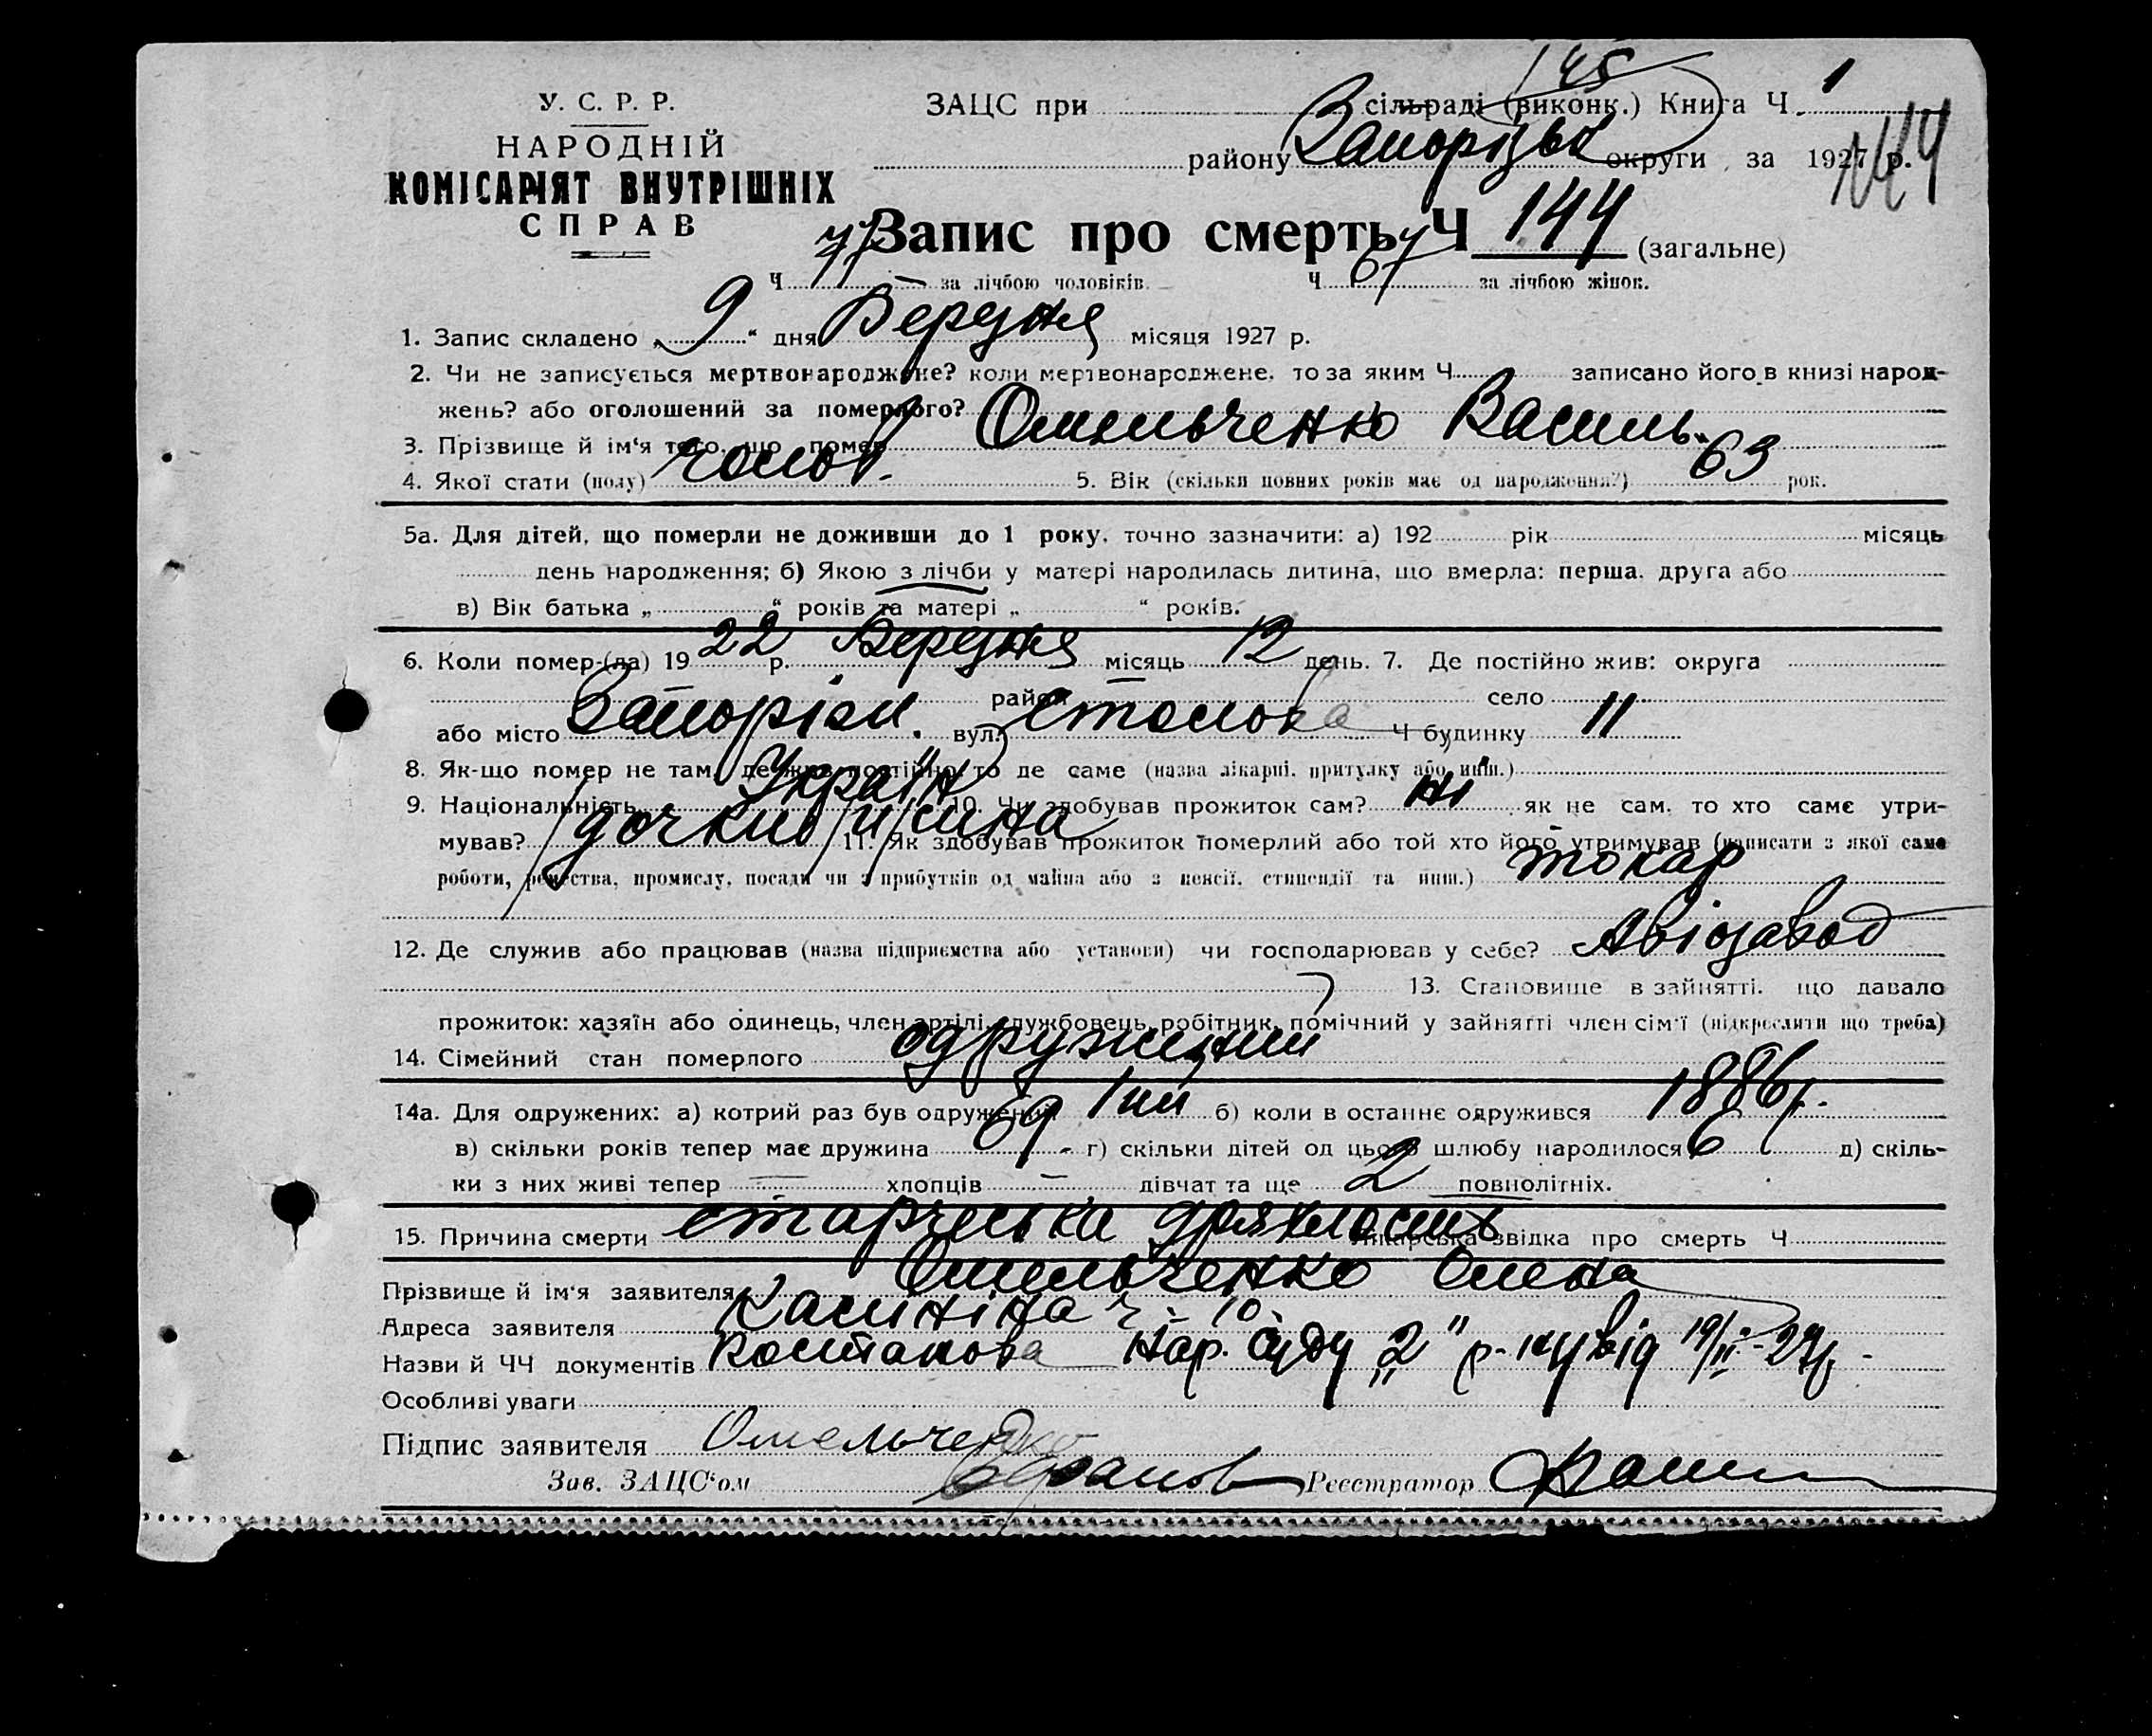 145
У. С. Р. Р.
НАРОДНІЙ
КОМІСАРІЯТ ВНУТРІШНІХ
СПРАВ
ЗАЦС при сільраді (виконк.) Книга Ч. 1
району Запорізьк округи за 1927 р.
144
Запис про смерть Ч 144 (загальне)
Ч 77 за лічбою чоловіків. Ч 67 за лічбою жінок.
1. Запис складено „ 9 “ дня Березня місяця 1927 р.
2. Чи не записується мертвонароджене? коли мертвонароджене, то за яким Ч. записано його в книзі народ-
жень? або оголошений за померлого?
3. Прізвище й ім‘я того, що помер Омельченко Василь.
4. Якої стати (полу) чолов. 5. Вік (скільки повних років має од народження?) 63 рок.
5а. Для дітей, що померли не доживши до 1 року, точно зазначити: а) 192 рік місяць
день народження; б) Якою з лічби у матері народилась дитина, що вмерла: перша, друга або
в) Вік батька „ “ років та матері „ “ років.
6. Коли помер-(ла) 19 22 р. Березня місяць 12 день. 7. Де постійно жив: округа
район село
або місто Запоріжж. вул. Столова Ч будинку 11
8. Як-що помер не там, де жив постійно, то де саме (назва лікарні, притулку або инш.)
9. Національність Україн 10. Чи здобував прожиток сам? ні як не сам, то хто саме утри-
мував? дочки и сина 11. Як здобував прожиток померлий або той хто його утримував (написати з якої саме
роботи, ремества, промислу, посади чи з прибутків од майна або з пенсії, стипендії та инш.) токар
12. Де служив або працював (назва підприємства або установи) чи господарював у себе? Авіозавод
13. Становище в зайнятті, що давало
прожиток: хазяїн або одинець, член артілі, службовець, робітник, помічний у зайнятті член сім‘ї (підкреслити що треба)
14. Сімейний стан померлого одружений
14а. Для одружених: а) котрий раз був одружений 1ий б) коли в останнє одружився 1886 р.
в) скільки років тепер має дружина 69 г) скільки дітей од цього шлюбу народилося 6 д) скіль-
ки з них живі тепер — хлопців — дівчат та ще 2 повнолітніх.
15. Причина смерти старчеська дряхлость Лікарська звідка про смерть Ч
Прізвище й ім‘я заявителя Омельченко Олена
Адреса заявителя Калініна ч. 10
Назви й ЧЧ документів Постанова Нар. Суду „2“ р-ну від 19/II-27р.
Особливі уваги
Підпис заявителя Омельченко
Зав. ЗАЦС‘ом Реєстратор